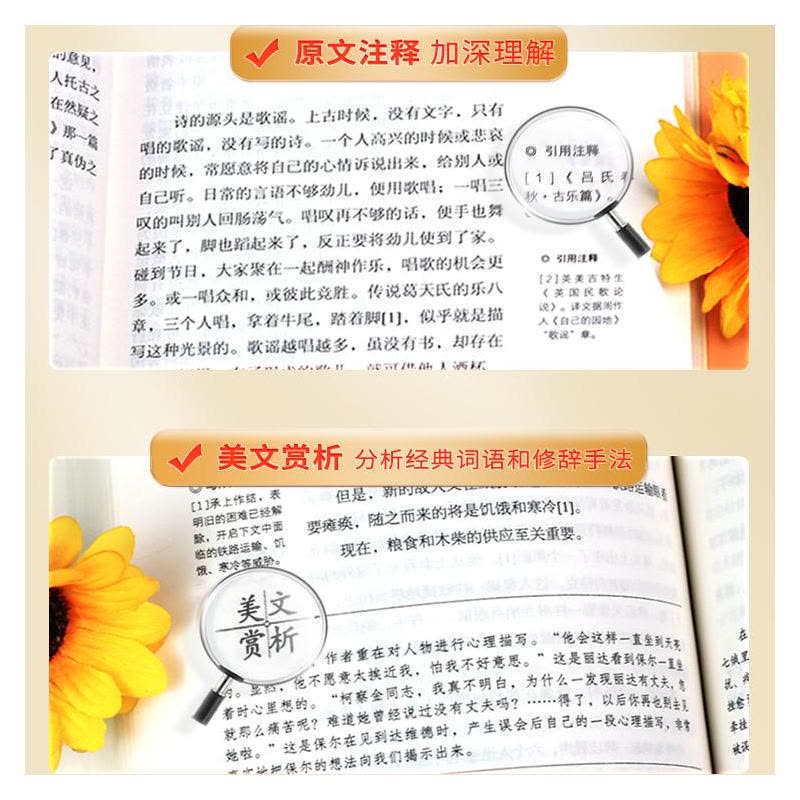 原文注释 加深理解
的意见，
人托古之
在然疑之
》那一篇
了真伪之
诗的源头是歌谣。上古时候，没有文字，只有
唱的歌谣，没有写的诗。一个人高兴的时候或悲哀
的时候，常愿意将自己的心情诉说出来，给别人或
自己听。日常的言语不够劲儿，便用歌唱；一唱三
叹的叫别人回肠荡气。唱叹再不够的话，便手也舞
起来了，脚也蹈起来了，反正要将劲儿使到了家。
碰到节日，大家聚在一起酬神作乐，唱歌的机会更
多。或一唱众和，或彼此竞胜。传说葛天氏的乐八
章，三个人唱，拿着牛尾，踏着脚[1]，似乎就是描
写这种光景的。歌谣越唱越多，虽没有书，却存在
就可借他人酒杯，
◎ 引用注释
[1]《吕氏春
秋·古乐篇》。
◎ 引用注释
[2]英美吉特生
《英国民歌论
说》。译文据周作
人《自己的园地》
“歌谣”章。
美文赏析 分析经典词语和修辞手法
[1]承上作结，表
明旧的困难已经解
除，开启下文中面
临的铁路运输、饥
饿、寒冷等威胁。
但是，新的敌人又在
要瘫痪，随之而来的将是饥饿和寒冷[1]。
现在，粮食和木柴的供应至关重要。
美文
赏析
作者重在对人物进行心理描写。“他会这样一直坐到天亮
的。显然，他不愿意太挨近我，怕我不好意思。”这是丽达看到保尔一直坐
着时心里想的。“柯察金同志，我真不明白，为什么一发现丽达有丈夫，您
就那么痛苦呢？难道她曾经说过没有丈夫吗？……得了，以后你再也别去见
她啦。”这是保尔在见到达维德时，产生误会后自己的一段心理描写，非常
真实地把保尔的想法向我们揭示出来。